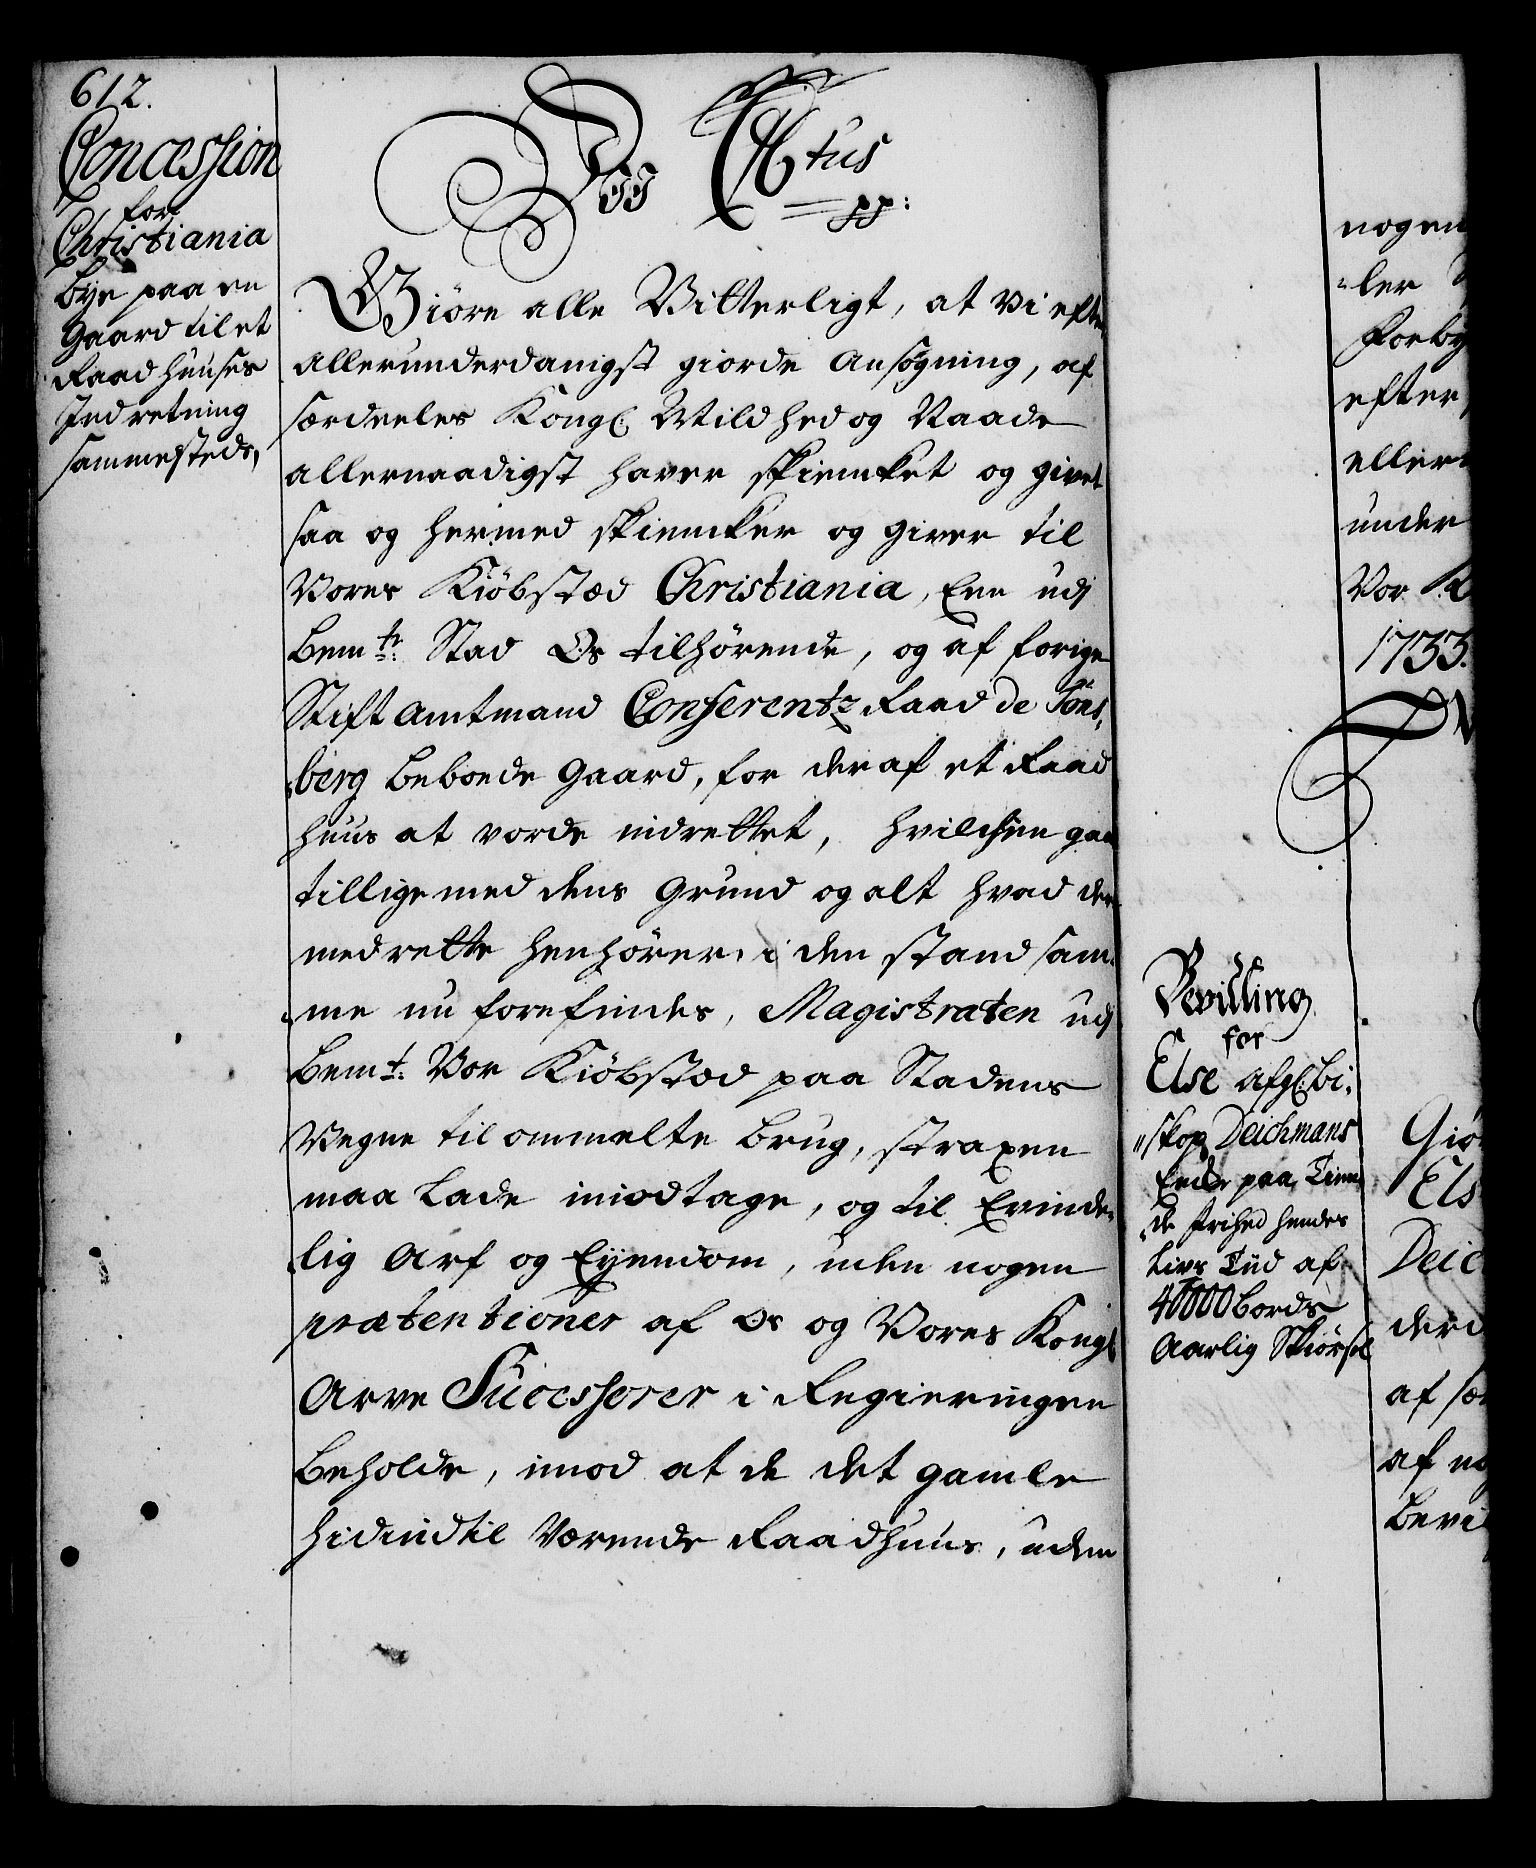 612.
Concession
for
Christiania
bye paa en
Gaard til et
Raadhuuses
Indretning
sammesteds,
Vii C6tus
pp:
Giöre alle Vitterligt, at Vi efter
allerunderdanigst giorde Ansøgning, af
særdeeles Kongl: Mildhed og Naade
allernaadigst haver skiencket og givet
saa og hermed skiencker og giver til
Vores Kiöbstæd Christiania, Een udj
bemte: Stad Os tilhörende, og af forige
Stift Amtmand Conferentz Raad de Töns„
„berg beboede Gaard, for deraf et Raad
huus at vorde indrettet, hvilchen gaa
tillige med dens Grund og alt hvad der
med rette henhörer, i den stand sam„
„me nu forefindes, Magistraten udj
bemt: Vor Kiöbstæd paa Stadens
Vegne til ommelte brug, straxen
maa lade imodtage, og til Evinde„
„lig Arf og Eyendom, uden nogen
prætentioner af Os og Vores Kongl
Arve Successorer i Regieringen
beholde, imod at de det gamle
hidindtil Værende Raadhuus, uden
nogen
„ler
Forby
efter
eller
under
Vor K
1733.
Bevilling
for
Else afgl: Bi„
„skop Deichmans
Encke paa Tien„
„de frihed hendes
Livs Tiid af
40000 bords
Aarlig Skiörsel
Giö
Els
Deic
der
af sæ
af no
bevi